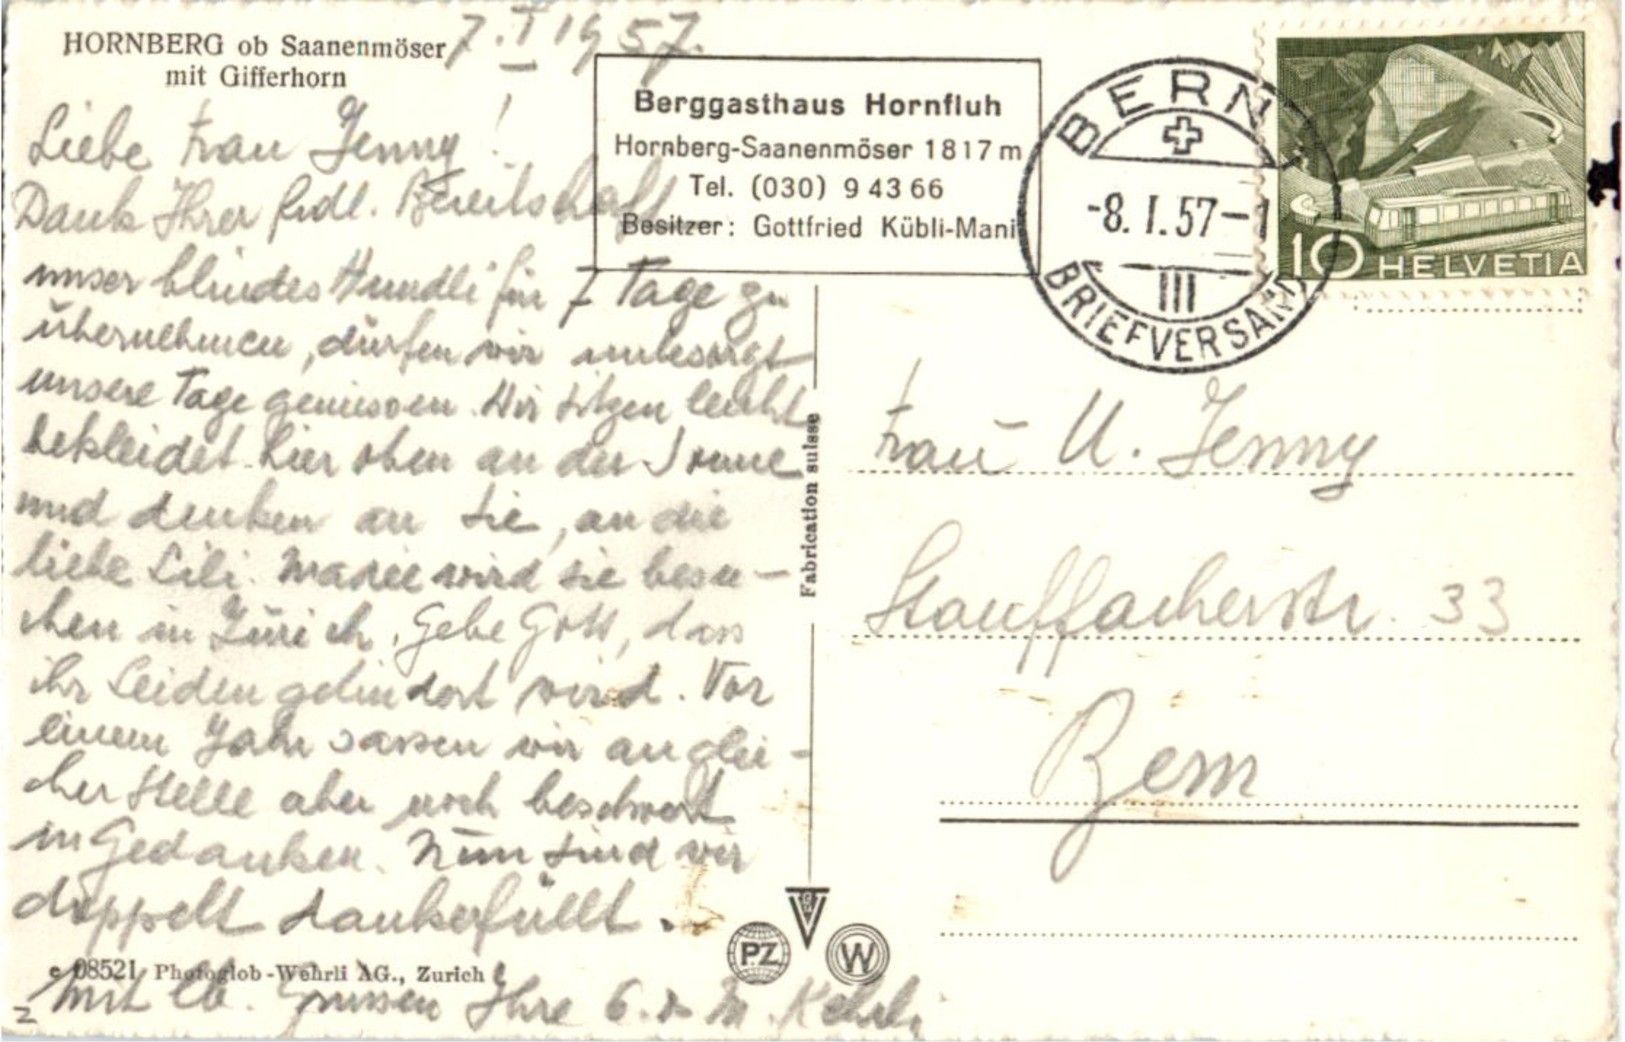 HORNBERG ob Saanenmöser
mit Gifferhorn
7. I 1957.
Liebe Frau Jenny!
Dank Ihrer frdl. Bereitschaft
unser blindes Hundli für 7 Tage zu
übernehmen, dürfen wir unbesorgt
unsere Tage geniessen. Wir sitzen leicht
bekleidet hier oben an der Sonne
und denken an Sie, an die
liebe Lili. Mariee wird sie besu-
chen in Zürich. Gebe Gott, dass
ihr Leiden gelindert wird. Vor
einem Jahr sassen wir an glei-
cher Stelle aber noch beschwert
in Gedanken. Nun sind wir
doppelt dankerfüllt.
Mit lb. Grüssen Ihre G. & M. Kehrli
c 08521 Photoglob-Wehrli AG., Zurich
Berggasthaus Hornfluh
Hornberg-Saanenmöser 1817 m
Tel. (030) 9 43 66
Besitzer: Gottfried Kübli-Mani
BERN 1
-8. I. 57-1
III
BRIEFVERSAND
10 HELVETIA
Fabrication suisse
Frau U. Jenny
Stauffacherstr. 33
Bern
PZ
W